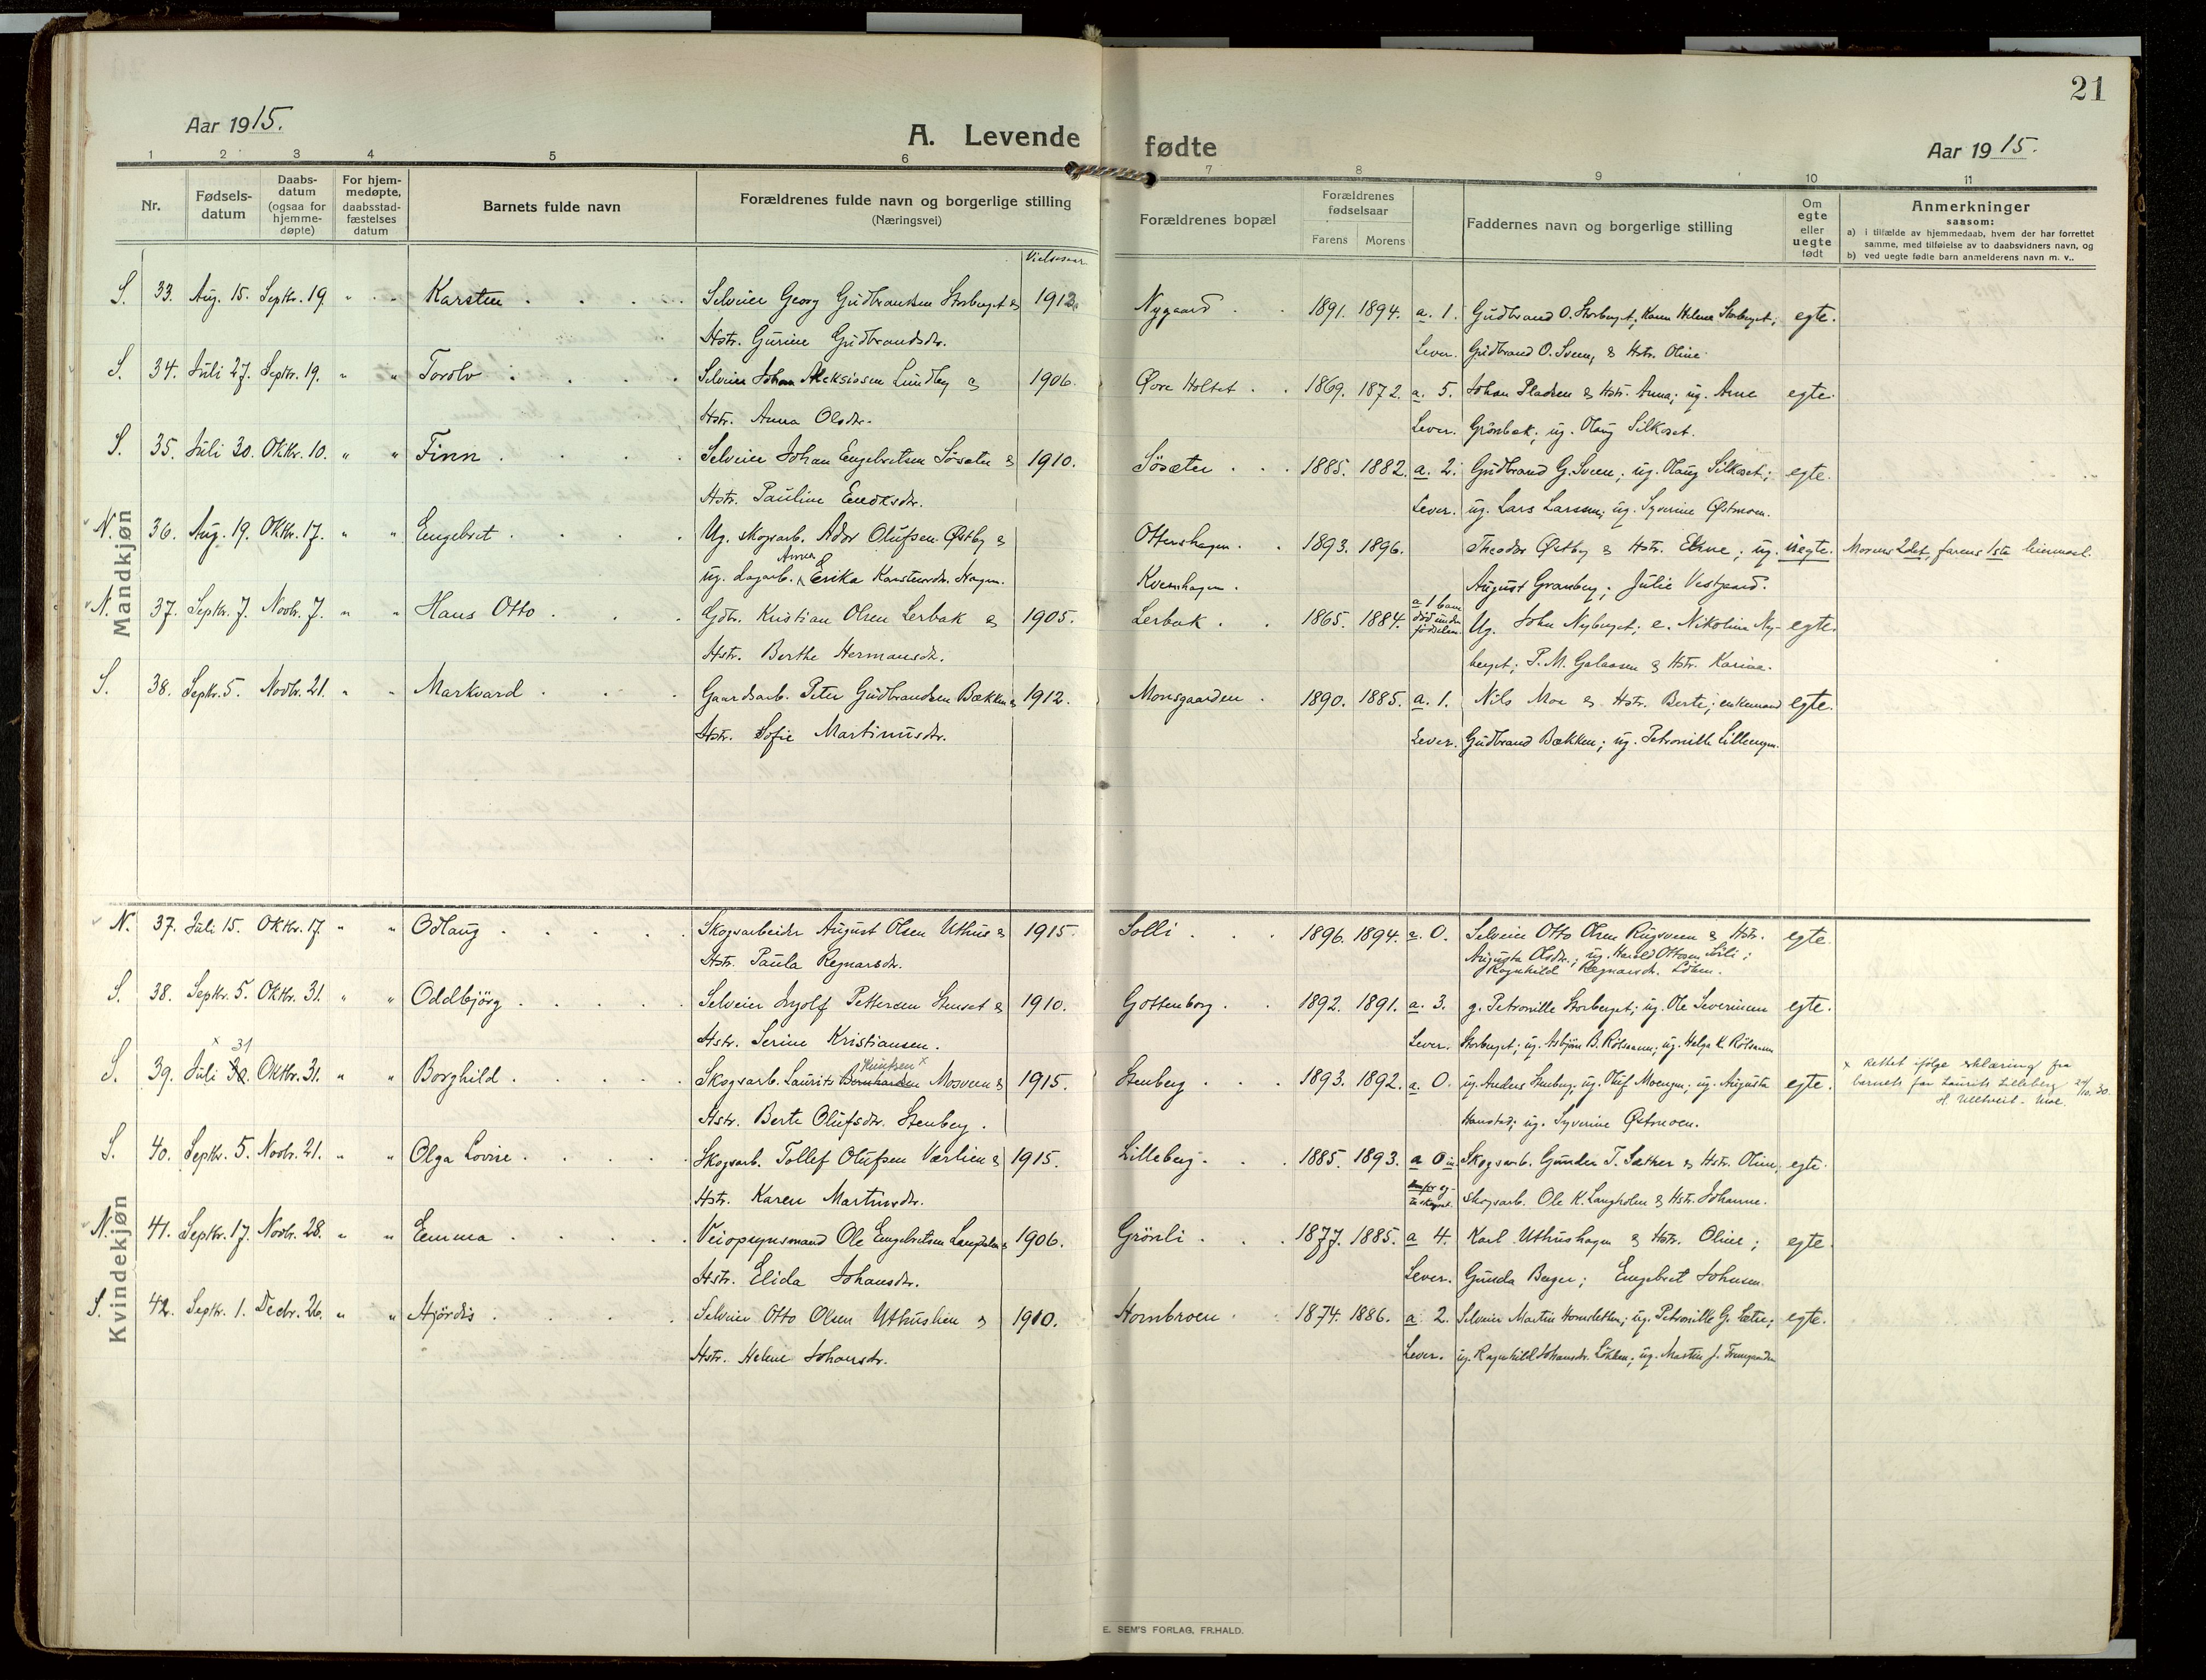 21
Aar 1915.
A. Levende fødte
Aar 1915.
1 2 3 4 5 6 7 8 9 10 11
Nr.
Fødsels-
datum
Daabs-
datum
(ogsaa for
hjemme-
døpte)
For hjem-
medøpte,
daabsstad-
fæstelses
datum
Barnets fulde navn
Forældrenes fulde navn og borgerlige stilling
(Næringsvei)
Vielsesaar
Forældrenes bopæl
Forældrenes
fødselsaar
Farens Morens
Faddernes navn og borgerlige stilling
Om
egte
eller
uegte
født
Anmerkninger
saasom:
a) i tilfælde av hjemmedaab, hvem der har forrettet
samme, med tilføielse av to daabsvidners navn, og
b) ved uegte fødte barn anmelderens navn m. v..
Mandkjøn
S. 33. Aug. 15. Septbr. 19. " " Karsten Selveier Georg Gudbrandsen Storberget & 1912. Nygaard 1891. 1894. a. 1. Gudbrand O. Storberget; Karen Helene Storberget; egte.
Hstr. Gurine Gudbrandsdr. Lever. Gudbrand O. Sveen, & Hstr. Oline
S. 34. Juli 27. Septbr. 19. " " Torolv Selveier Johan Aleksiosen Lundby & 1906. Øvre Holtet 1869. 1872. a. 5. Johan Pladsen & Hstr. Anna; ug. Arne egte.
Hstr. Anna Olsdr. Lever. Grönbæk; ug. Olaug Silkoset.
S. 35. Juli 30. Oktbr. 10. " " Finn Selveier Johan Engebretsen Søsæter & 1910. Søsæter 1885. 1882. a. 2. Gudbrand G. Sveen; ug. Olaug Silkoset; egte.
Hstr. Pauline Enoksdr. Lever. ug. Lars Larssen; ug. Syverine Østmoen.
N. 36. Aug. 19. Oktbr. 17. " " Engebret Ug. skogsarb. Ador Olufsen Østby & Ottershagen. 1893. 1896. Theodor Østby & Hstr. Eline; ug. uegte. Morens 2det, farens 1ste leiermaal.
Anna
ug. dagarb. Erika Karstensdr. Hagen. Kvernhagen. August Granberg; Julie Vestgaard.
N. 37. Septbr. 7. Novbr. 7. " " Hans Otto Gdbr. Kristian Olsen Lerbak & 1905. Lerbak 1865. 1884. a 1 barn død under fødselen. Ug. John Nyberget; e. Nikoline Ny- egte.
Hstr. Berthe Hermansdr. berget; P. M. Galaasen & Hstr. Karine.
S. 38. Septbr. 5. Novbr. 21. " " Markvard Gaardsarb. Peter Gudbrandsen Bækken & 1912. Monsgaarden 1890. 1885. a. 1. Nils Moe & Hstr. Berte; enkemand egte.
Hstr. Sofie Martinusdr. Lever. Gudbrand Bækken; ug. Petronille Lilleengen.
Kvindekjøn
N. 37. Juli 15. Oktbr. 17 " " Odlaug Skogsarbeider August Olsen Uthus & 1915. Solli 1896. 1894. a. 0. Selveier Otto Olsen Rugsveen & Hstr. egte.
Hstr. Paula Regnarsdr. Augusta Olsdr.; ug. Harald Ottosen Söli;
Ragnhild Regnarsdr. Löken.
S. 38. Septbr. 5. Oktbr. 31. " " Oddbjörg Selveier Ingolf Pettersen Stenset & 1910. Gottenborg 1892. 1891. a. 3. g. Petronille Storberget; ug. Ole Severinsen egte.
Hstr. Serine Kristiansen. Lever. Storberget; ug. Asbjørn B. Rötsveen; ug. Helga K. Rötsveen
x 31 Knutsen x
S. 39. Juli 30. Oktbr. 31. " " Borghild Skogsarb. Laurits Bernhardsen Mosveen & 1915. Stenberg 1893. 1892. a. 0. ug. Anders Stenberg; ug. Oluf Moengen; ug. Augusta egte. x Rettet ifølge erklæring fra
barnets far Laurits Lilleberg 24/10. 30.
Hstr. Berte Olufsdr. Stenberg. Hanstad; ug. Syverine Østmoen.
S. 40. Septbr. 5. Novbr. 21. " " Olga Lovise Skogsarb. Tollef Olufsen Værlien & 1915. Lilleberg 1885. 1893. a 0 Skogsarb. Gunder T. Sæther & Hstr. Oline, egte.
Hstr. Karen Martinsdr. skogsarb. Ole K. Langholen & Hstr. Johanne.
N. 41. Septbr. 17. Novbr. 28. " " Emma Veiopsynsmand Ole Engebretsen Langholen & 1906. Grönli 1877. 1885. a 4. Karl Uthushagen & Hstr. Oline; egte.
Hstr. Elida Johansdr. Lever. Gunda Berger; Engebret Johnsen.
S. 42. Septbr. 1. Decbr. 26. " " Hjördis Selveier Otto Olsen Uthuslien & 1910. Hornbroen 1874. 1886. a 2. Selveier Martin Hornsletten; ug. Petronille G. Sæter; egte.
Hstr. Helene Johansdr. Lever. ug. Ragnhild Johansdr. Løkken; ug. Martin J. Framgaarden
E. SEM'S FORLAG, FR.HALD.